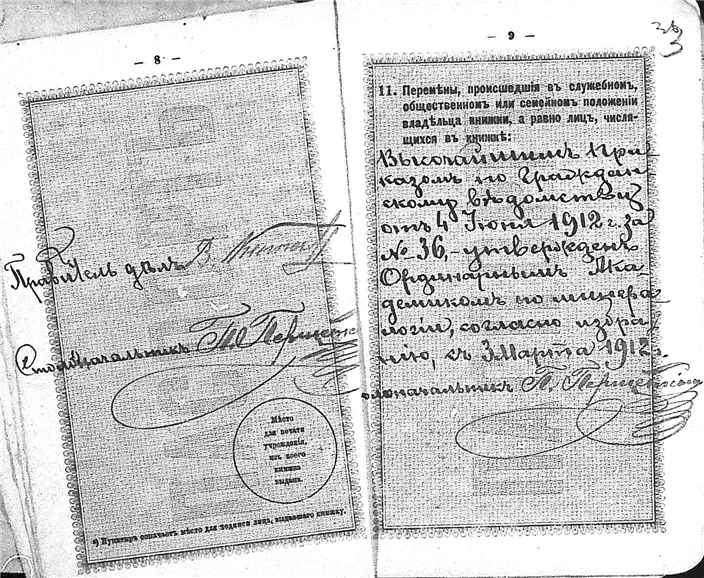 — 8 —
Правитель дѣлъ В.
Столоначальникъ П. Першетскій
Мѣсто
для печати
учрежденія,
изъ коего
книжка
выдана.
*) Пунктиръ означаетъ мѣсто для подписи лица, выдавшаго книжку.
— 9 —
11. Перемѣны, происшедшія въ служебномъ,
общественномъ или семейномъ положеніи
владѣльца книжки, а равно лицъ, числя-
щихся въ книжкѣ:
Высочайшимъ При-
казомъ по граждан-
скому вѣдомству
отъ 4 Іюня 1912 г. за
№ 36,- утвержденъ
Ординарнымъ Ака-
демикомъ по минера-
логіи, согласно избра-
нію, съ 3 Марта 1912 г.
олоначальникъ П.